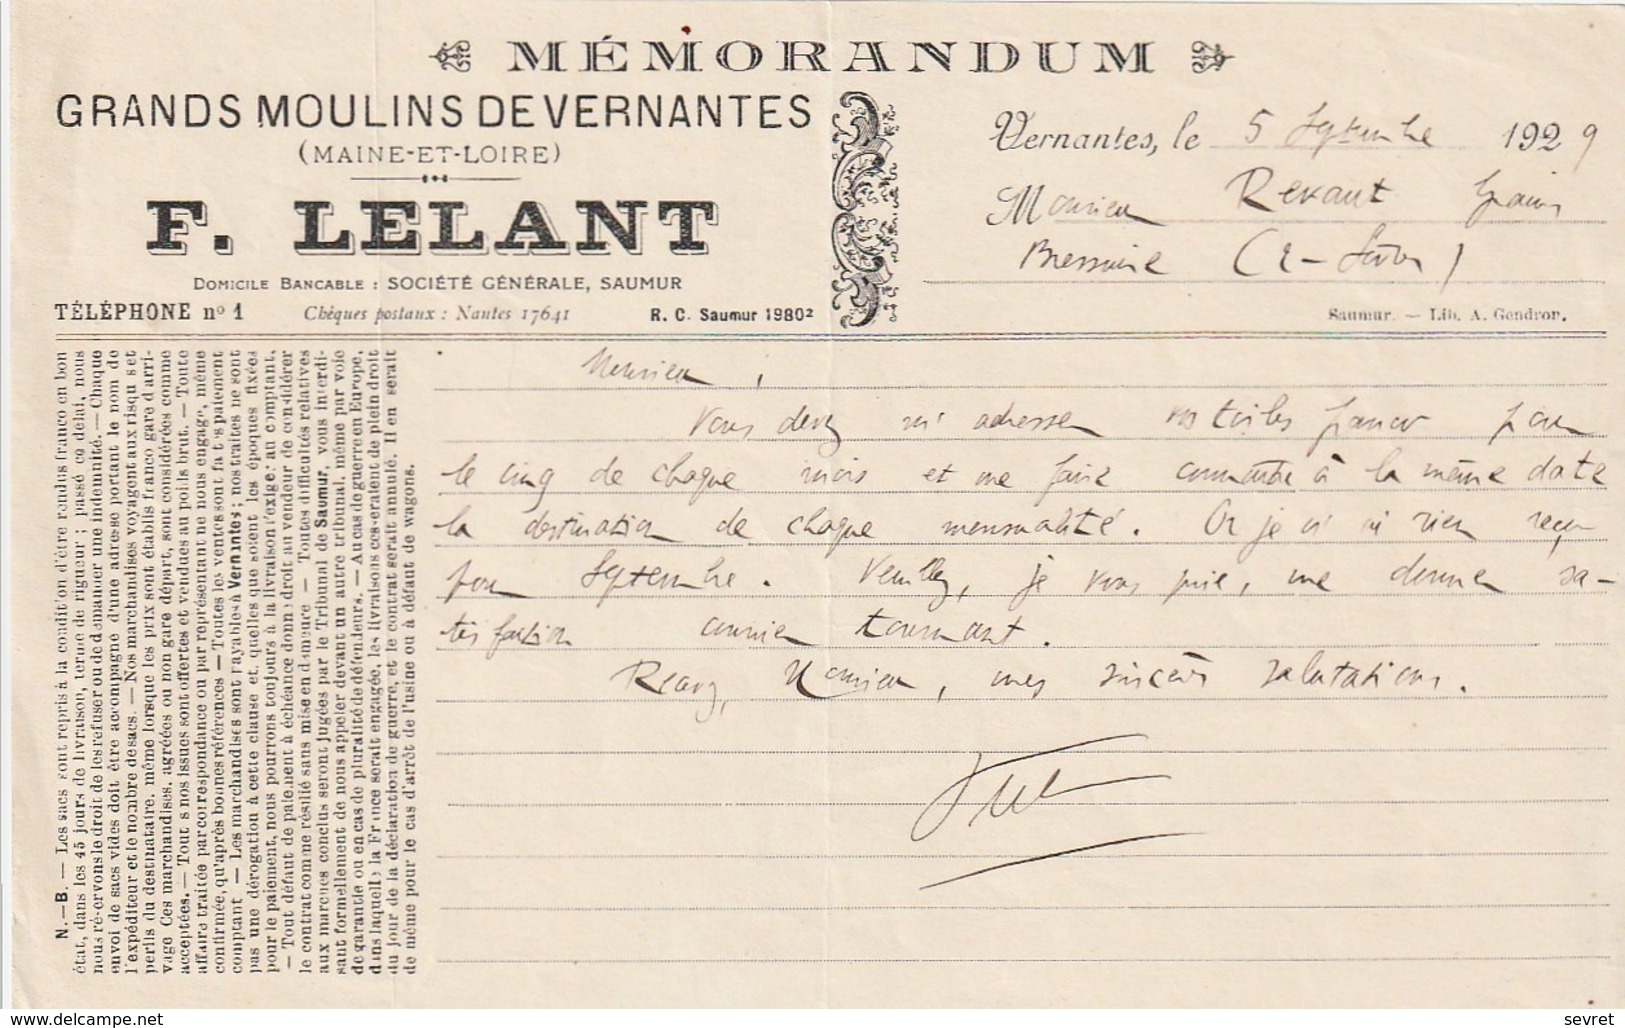 MÉMORANDUM
GRANDS MOULINS DE VERNANTES
(MAINE-ET-LOIRE)
F. LELANT
DOMICILE BANCABLE : SOCIÉTÉ GÉNÉRALE, SAUMUR
TÉLÉPHONE nº 1 Chèques postaux : Nantes 17641 R. C. Saumur 1980²
Vernantes, le 5 Septembre 1929
Monsieur Revaut Grains
Bressuire (2-Sèvres)
Saumur. — Lib. A. Gendron.
N.-B. — Les sacs sont repris à la condit'on d'être rendus franco en bon
état, dans les 45 jours de livraison, terme de rigueur ; passé ce délai, nous
nous réservons le droit de les refuser ou de demander une indemnité. — Chaque
envoi de sacs vides doit être accompagné d'une adresse portant le nom de
l'expéditeur et le nombre de sacs. — Nos marchandises voyagent aux risqu s et
perils du destinataire, même lorsque les prix sont établis franco gare d'arri-
vage Ces marchandises, agréées ou non gare départ, sont considérées comme
acceptées. — Tout s nos issues sont offertes et vendues au poids brut. — Toute
affaire traitée par correspondance ou par représentant ne nous engage, même
confirmée, qu'après bonnes références — Toutes les ventes sont fait s paiement
comptant — Les marchandises sont payables à Vernantes ; nos traites ne sont
pas une dérogation à cette clause et, quelles que soient les époques fixées
pour le paiement, nous pourrons toujours à la livraison l'exige: au comptant.
— Tout défaut de paiement à échéance donne droit au vendeur de considérer
le contrat comme résilié sans mise en demeure — Toutes difficultés relatives
aux marchés conclus seront jugées par le Tribunal de Saumur, vous interdi-
sant formellement de nous appeler devant un autre tribunal, même par voie
de garantie ou en cas de pluralité de défendeurs. — Au cas de guerre en Europe,
dans laquelle la France serait engagée, les livraisons cesseraient de plein droit
du jour de la déclaration de guerre, et le contrat serait annulé. Il en serait
de même pour le cas d'arrêt de l'usine ou à défaut de wagons.
Monsieur,
Vous devez m'adresser vos toiles franco pour
le cinq de chaque mois et me faire connaître à la même date
la destination de chaque mensualité. Or je n'ai rien reçu
pour Septembre. Veuillez, je vous prie, me donner sa-
tisfaction courrier tournant.
Recevez, Monsieur, mes sincères salutations.
delcampe.net
sevret